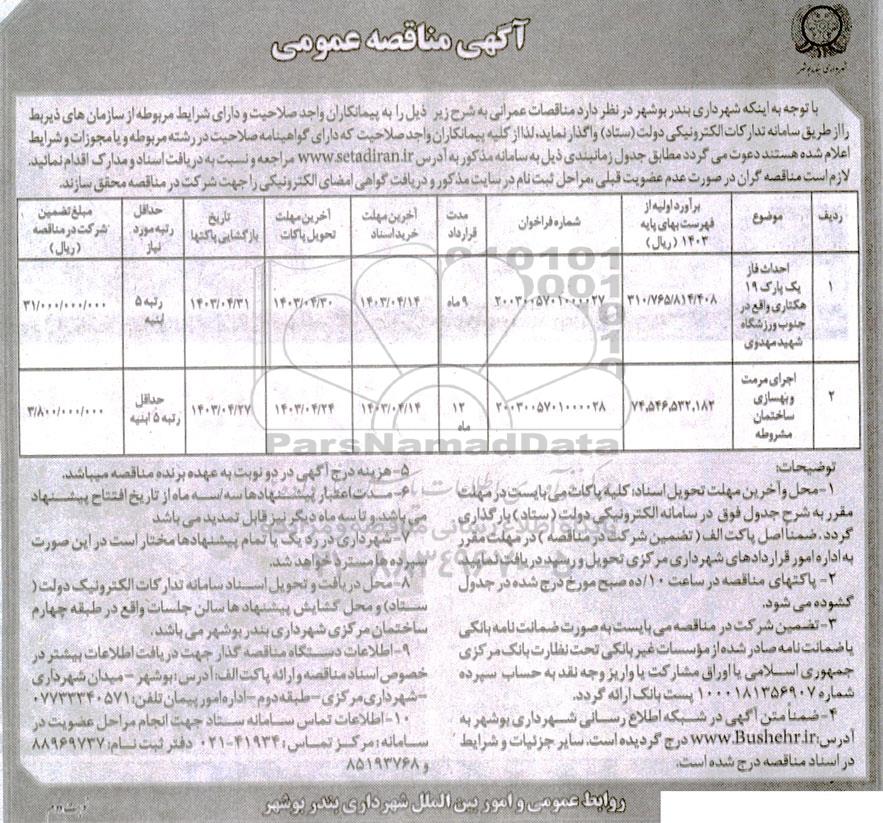 آگهی مناقصه عمومی
شهرداری بندر بوشهر
با توجه به اینکه شهرداری بندر بوشهر در نظر دارد مناقصات عمرانی به شرح زیر ذیل را به پیمانکاران واجد صلاحیت و دارای شرایط مربوطه از سازمان های ذیربط
را از طریق سامانه تدارکات الکترونیکی دولت (ستاد) واگذار نماید، لذا از کلیه پیمانکاران واجد صلاحیت که دارای گواهینامه صلاحیت در رشته مربوطه و یا مجوزات و شرایط
اعلام شده هستند دعوت می گردد مطابق جدول زمانبندی ذیل به سامانه مذکور به آدرس www.setadiran.ir مراجعه و نسبت به دریافت اسناد و مدارک اقدام نمائید.
لازم است مناقصه گران در صورت عدم عضویت قبلی ،مراحل ثبت نام در سایت مذکور و دریافت گواهی امضای الکترونیکی را جهت شرکت در مناقصه محقق سازند.
ردیف
موضوع
برآورد اولیه از
فهرست بهای پایه
۱۴۰۳ (ریال)
شماره فراخوان
مدت
قرارداد
آخرین مهلت
خرید اسناد
آخرین مهلت
تحویل پاکات
تاریخ
بازگشایی پاکتها
حداقل
رتبه مورد
نیاز
مبلغ تضمین
شرکت در مناقصه
(ریال)
۱
احداث فاز
یک پارک ۱۹
هکتاری واقع در
جنوب ورزشگاه
شهید مهدوی
۳۱۰/۷۶۵/۸۱۴/۴۰۸
۲۰۰۳۰۰۵۷۰۱۰۰۰۰۲۷
۹ ماه
۱۴۰۳/۰۴/۱۴
۱۴۰۳/۰۴/۳۰
۱۴۰۳/۰۴/۳۱
رتبه ۵
ابنیه
۳۱/۰۰۰/۰۰۰/۰۰۰
۲
اجرای مرمت
و بهسازی
ساختمان
مشروطه
۷۴,۵۴۶,۵۳۲,۱۸۲
۲۰۰۳۰۰۵۷۰۱۰۰۰۰۲۸
۱۲
ماه
۱۴۰۳/۰۴/۱۴
۱۴۰۳/۰۴/۲۴
۱۴۰۳/۰۴/۲۷
حداقل
رتبه ۵ ابنیه
۳/۸۰۰/۰۰۰/۰۰۰
ParsNamadData
توضیحات:
۱-محل و آخرین مهلت تحویل اسناد: کلیه پاکات می بایست در مهلت
مقرر به شرح جدول فوق در سامانه الکترونیکی دولت (ستاد) بارگذاری
گردد. ضمنا اصل پاکت الف (تضمین شرکت در مناقصه) در مهلت مقرر
به اداره امور قراردادهای شهرداری مرکزی تحویل و رسید دریافت نمایند
۲- پاکتهای مناقصه در ساعت ۱۰/ده صبح مورخ درج شده در جدول
گشوده می شود.
۳-تضمین شرکت در مناقصه می بایست به صورت ضمانت نامه بانکی
یا ضمانت نامه صادر شده از مؤسسات غیر بانکی تحت نظارت بانک مرکزی
جمهوری اسلامی یا اوراق مشارکت یا واریز وجه نقد به حساب سپرده
شماره ۱۰۰۰۱۸۱۳۵۶۹۰۷ پست بانک ارائه گردد.
۴-ضمنا متن آگهی در شبکه اطلاع رسانی شهرداری بوشهر به
آدرس:www.Bushehr.ir درج گردیده است. سایر جزئیات و شرایط
در اسناد مناقصه درج شده است.
۵-هزینه درج آگهی در دو نوبت به عهده برنده مناقصه میباشد.
۶-مدت اعتبار پیشنهادها سه/سه ماه از تاریخ افتتاح پیشنهاد
می باشد و تا سه ماه دیگر نیز قابل تمدید می باشد
۷-شهرداری در رد یک یا تمام پیشنهادها مختار است در این صورت
سپرده ها مسترد خواهد شد.
۸-محل دریافت و تحویل اسناد سامانه تدارکات الکترونیک دولت(
ستاد) و محل گشایش پیشنهاد ها سالن جلسات واقع در طبقه چهارم
ساختمان مرکزی شهرداری بندر بوشهر می باشد.
۹-اطلاعات دستگاه مناقصه گذار جهت دریافت اطلاعات بیشتر در
خصوص اسناد مناقصه و ارائه پاکت الف: آدرس: بوشهر - میدان شهرداری
-شهرداری مرکزی - طبقه دوم - اداره امور پیمان تلفن: ۰۷۷۳۳۳۴۰۵۷۱
۱۰-اطلاعات تماس سامانه ستاد جهت انجام مراحل عضویت در
سامانه: مرکز تماس: ۴۱۹۳۴-۰۲۱ دفتر ثبت نام: ۸۸۹۶۹۷۳۷
و ۸۵۱۹۳۷۶۸
روابط عمومی و امور بین الملل شهرداری بندر بوشهر